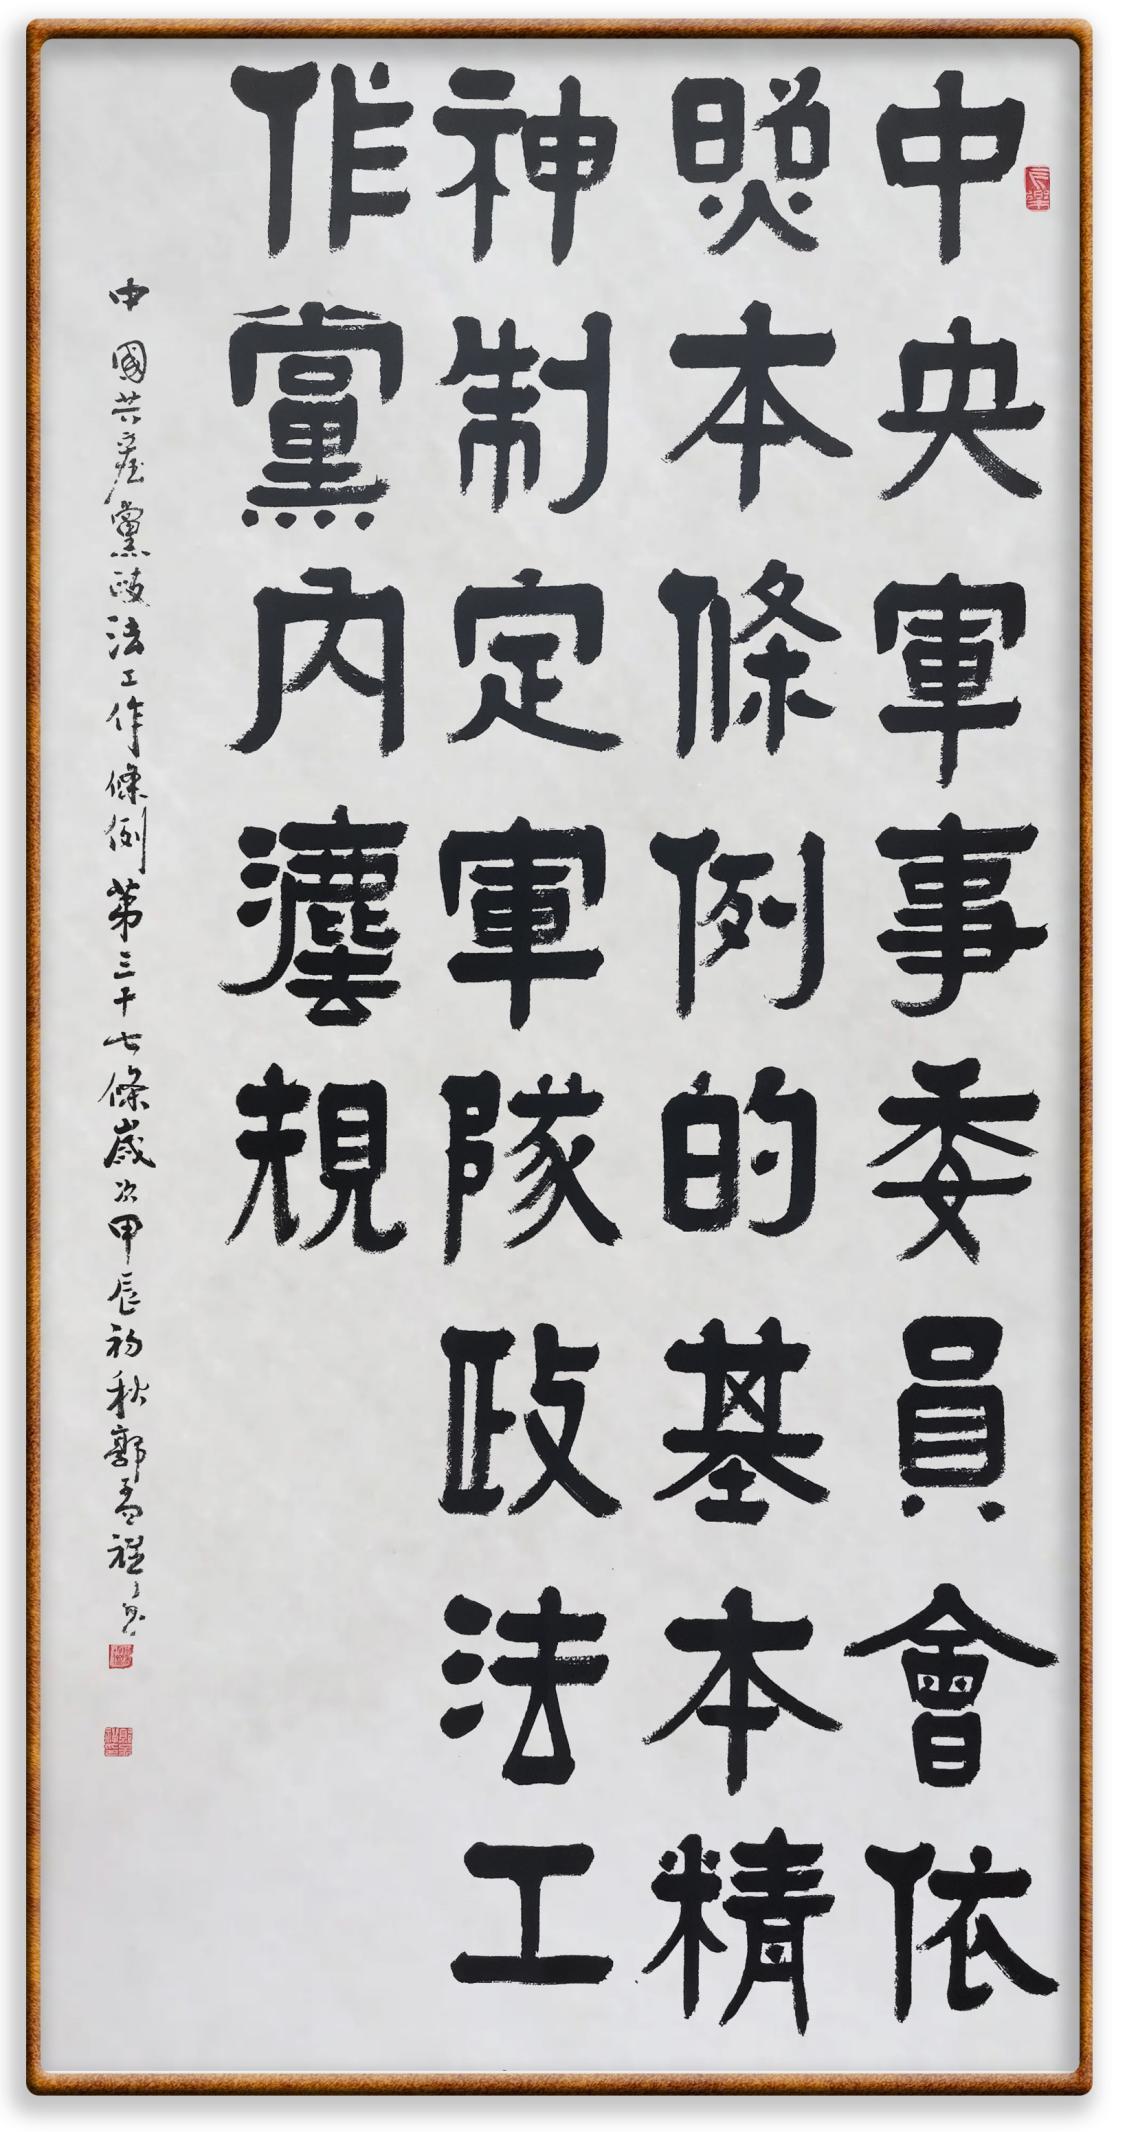 中央軍事委員會依
照本條例的基本精
神制定軍隊政法工
作黨內灋規
中國共產黨政法工作條例第三十七條歲次甲辰初秋郭孟程書